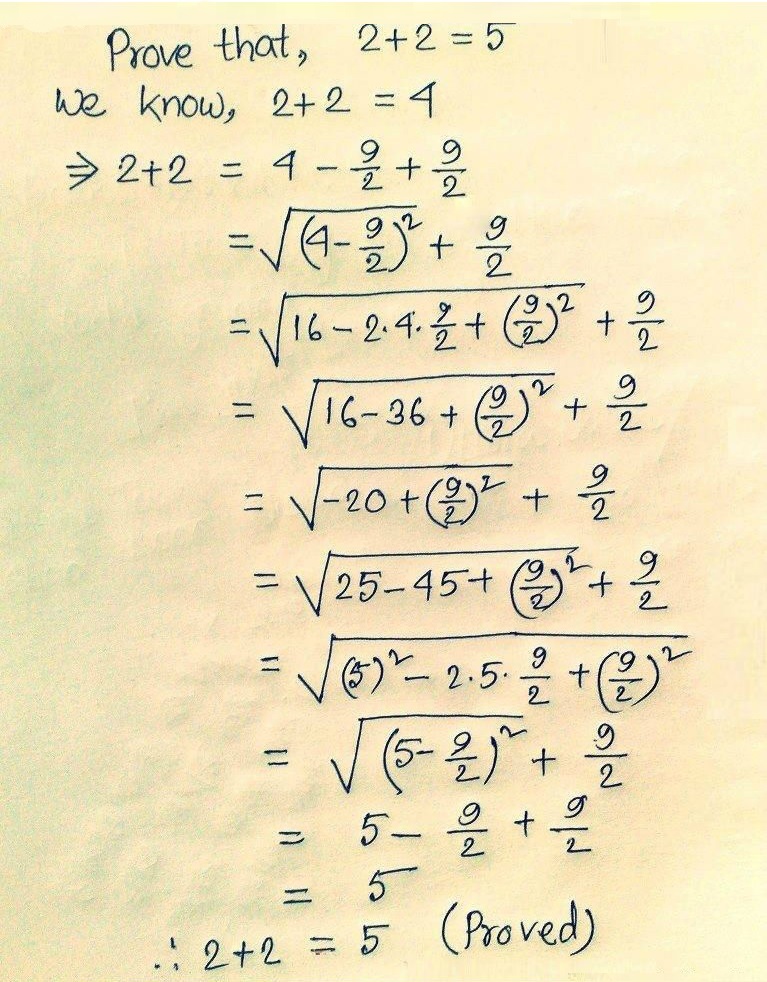 Prove that, 2+2 = 5
We know, 2+2 = 4
⇒ 2+2 = 4 - 9/2 + 9/2
= √((4 - 9/2)²) + 9/2
= √(16 - 2·4·9/2 + (9/2)²) + 9/2
= √(16 - 36 + (9/2)²) + 9/2
= √(-20 + (9/2)²) + 9/2
= √(25 - 45 + (9/2)²) + 9/2
= √((5)² - 2·5·9/2 + (9/2)²)
= √((5 - 9/2)²) + 9/2
= 5 - 9/2 + 9/2
= 5
∴ 2+2 = 5 (Proved)